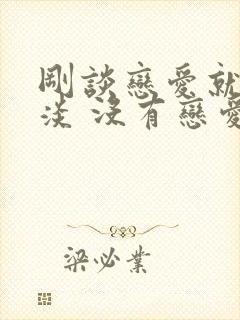 剛談戀愛就
淡 沒有戀愛
梁必業